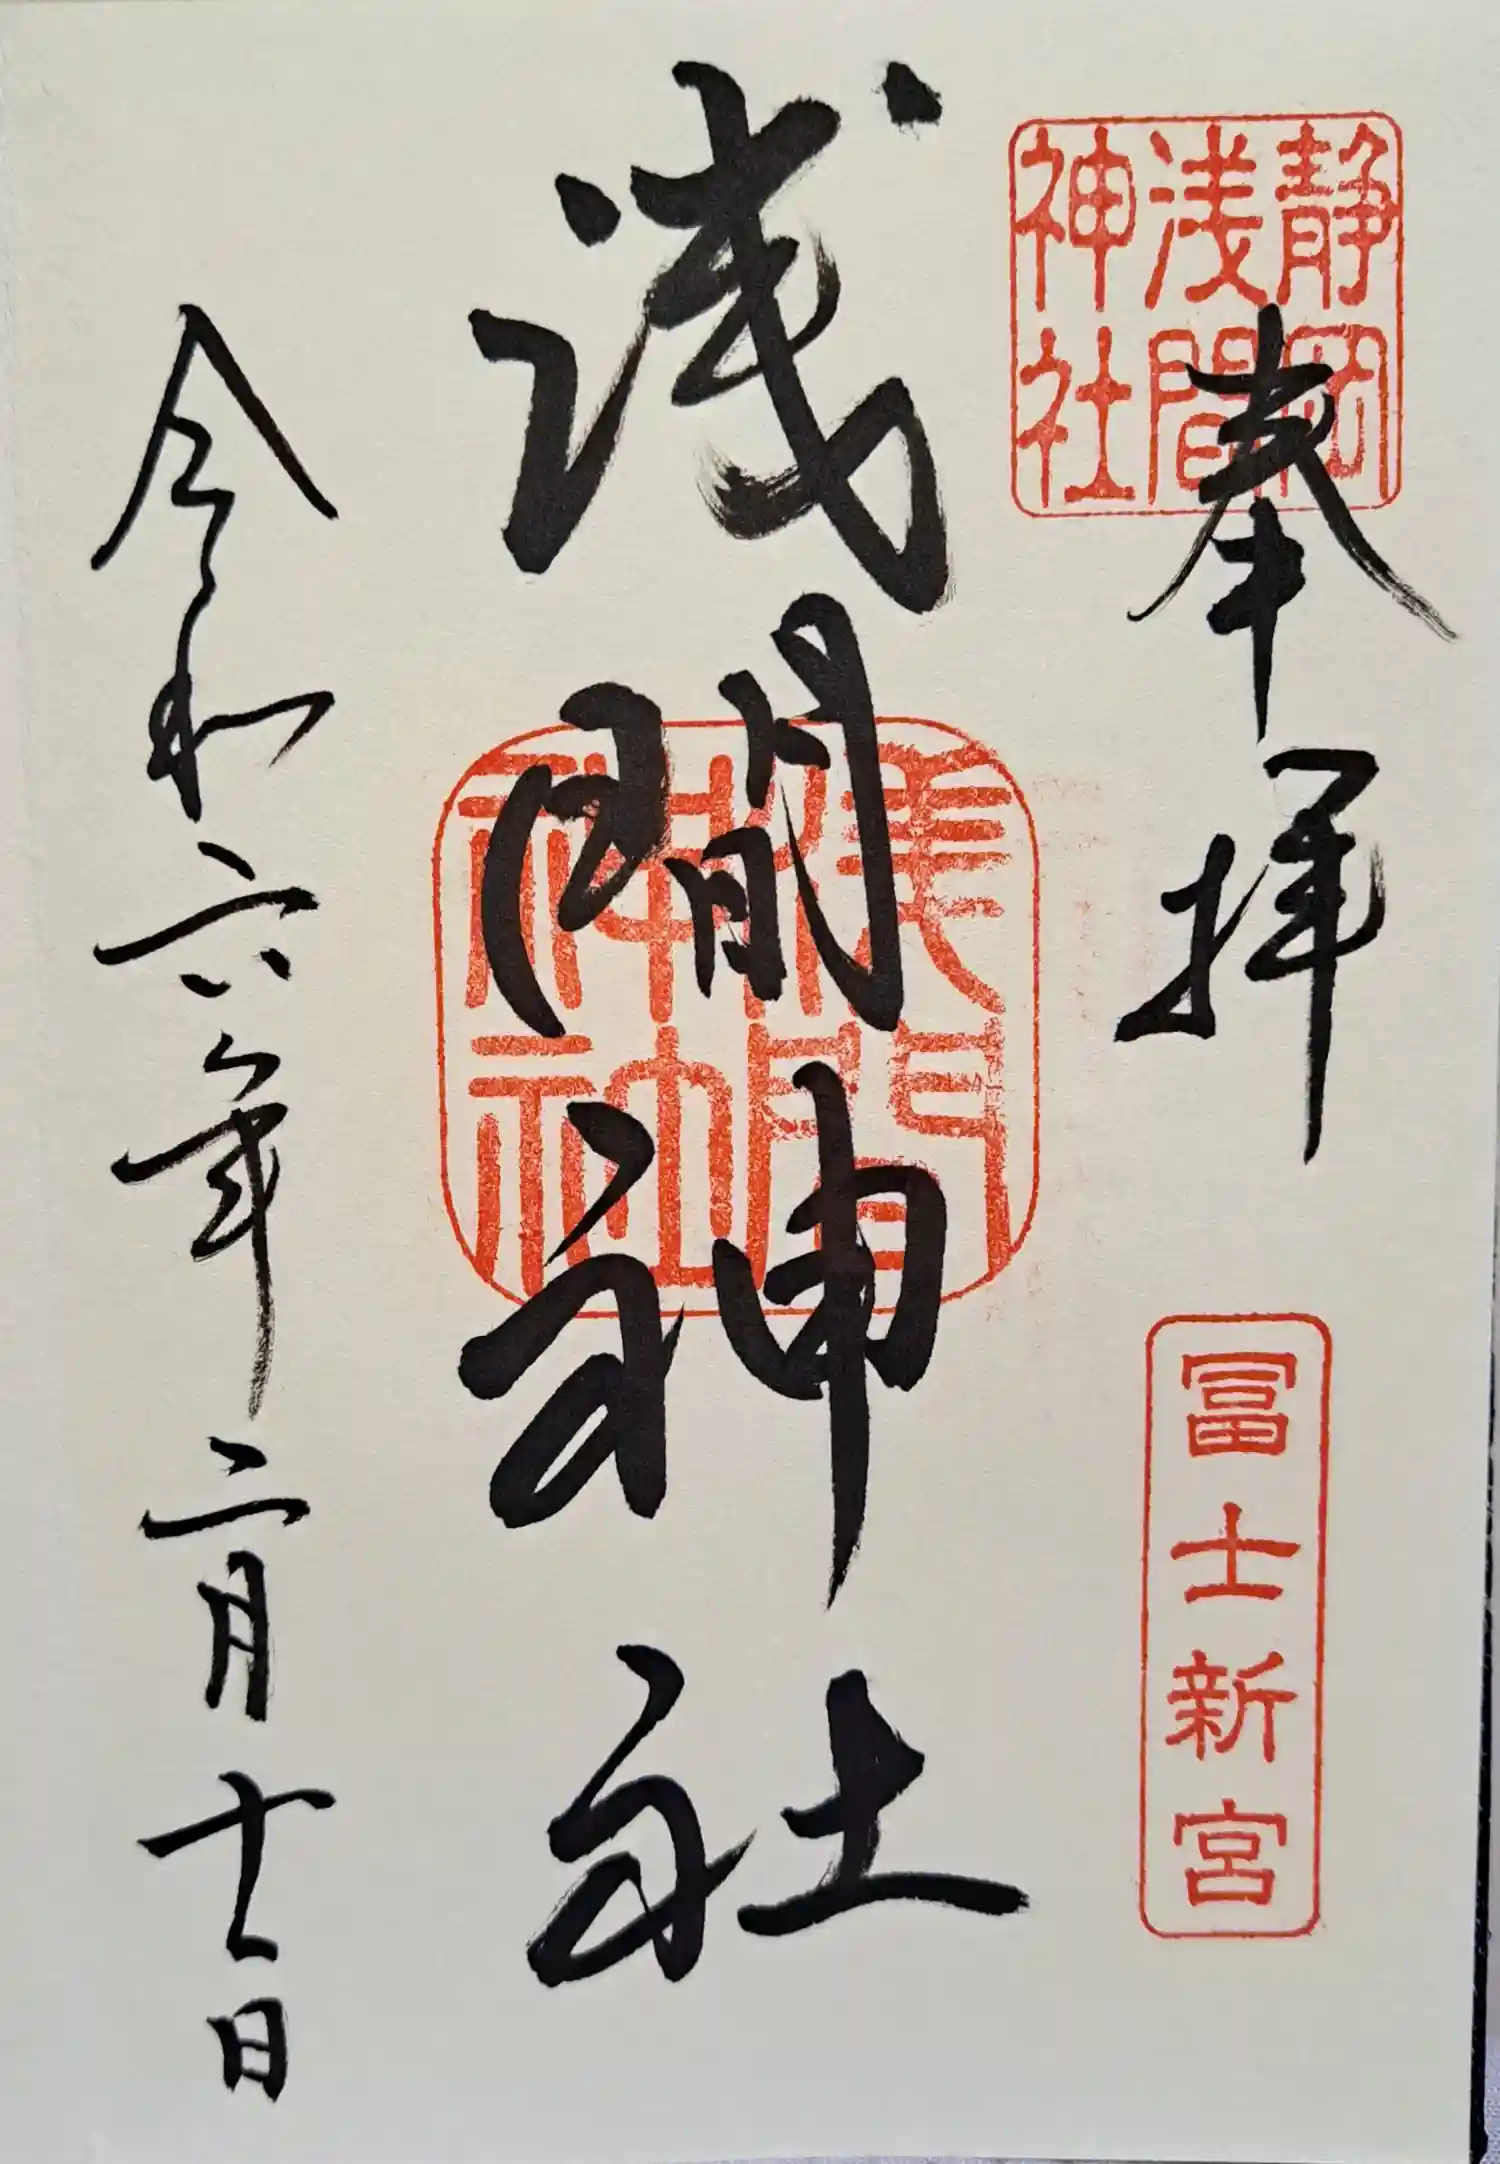 奉拝
静岡
浅間
神社
冨士新宮
浅間神社
浅間
神社
令和六年二月十一日